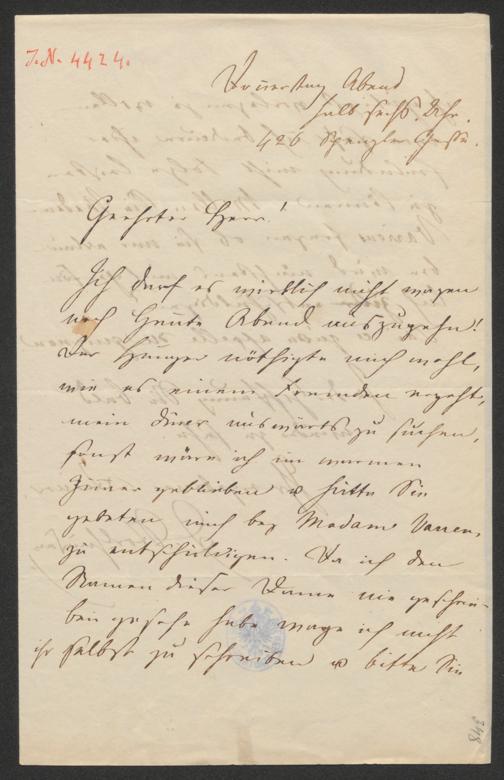 J.N. 4424.
Donnerstag Abend
halb sechs Uhr.
426 Spenglergasse.
Geehrter Herr!
Ich darf es wirklich nicht wagen
noch Heute Abend auszugehn!
Der Hunger nöthigte mich wohl,
wie es einem Fremden ergeht,
mein Diner auswärts zu suchen,
sonst wäre ich im warmen
Zimer geblieben u hätte Sie
gebeten mich bey Madam
zu entschuldigen. Da ich den
Namen dieser Dame nie geschrie-
ben gesehe habe wage ich nicht
ihr selbst zu schreiben u bitte Sie
348